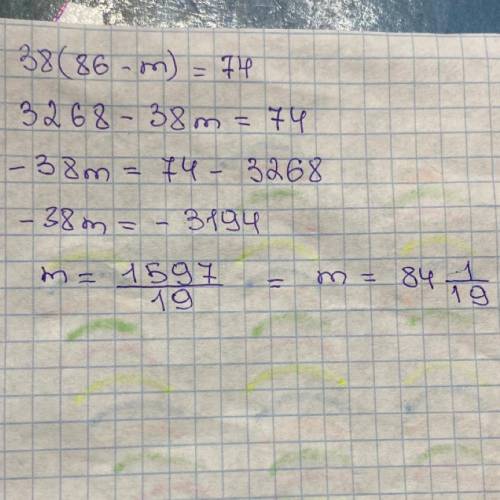 38(86 - m) = 74
3268 - 38m = 74
- 38m = 74 - 3268
- 38m = - 3194
m = 1597/19 = m = 84 1/19